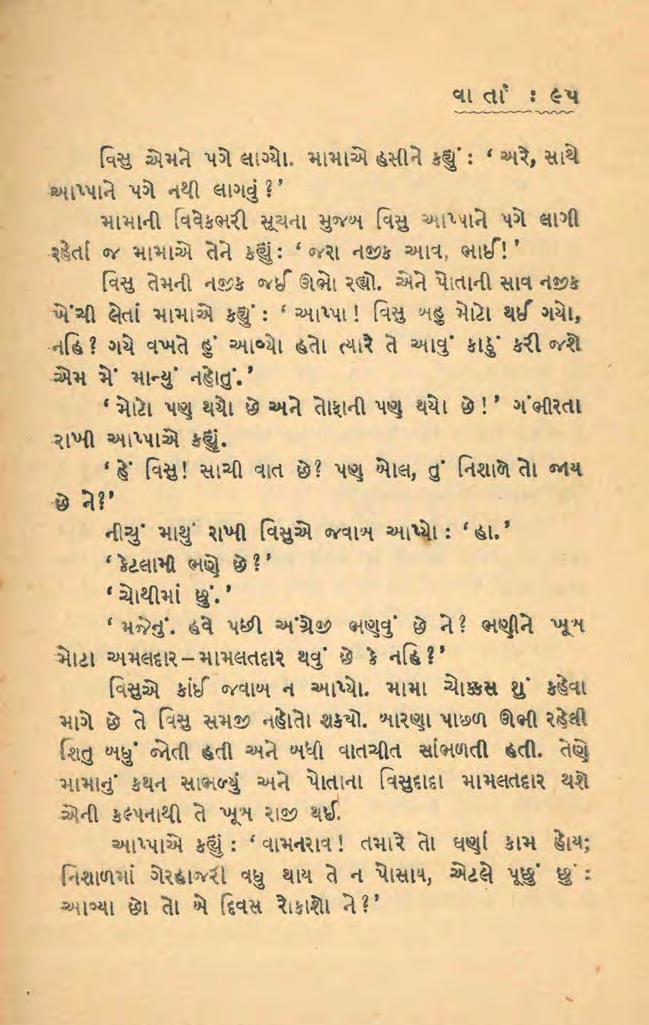 વાર્તા : ૯૫
વિસુ એમને પગે લાગ્યો. મામાએ હસીને કહ્યું : ‘ અરે, સાથે
આપ્પાને પગે નથી લાગવું ?’
મામાની વિવેકભરી સૂચના મુજબ વિસુ આપ્પાને પગે લાગી
રહેતાં જ મામાએ તેને કહ્યું : ‘ જરા નજીક આવ, ભાઈ!’
વિસુ તેમની નજીક જઈ ઊભો રહ્યો. એને પોતાની સાવ નજીક
ખેંચી લેતાં મામાએ કહ્યું : ‘ આપ્પા! વિસુ બહુ મોટો થઈ ગયો,
નહિ? ગયે વખતે હું આવ્યો હતો ત્યારે તે આવું કાઠું કરી જશે
એમ મેં માન્યું નહોતું.’
‘ મોટો પણ થયો છે અને તોફાની પણ થયો છે!’ ગંભીરતા
રાખી આપ્પાએ કહ્યું.
‘ હેં વિસુ! સાચી વાત છે? પણ બોલ, તું નિશાળે તો જાય
છે ને?’
નીચું માથું રાખી વિસુએ જવાબ આપ્યો : ‘હા.’
‘ કેટલામી ભણે છે?’
‘ ચોથીમાં છું.’
‘ મજેનું. હવે પછી અંગ્રેજી ભણવું છે ને? ભણીને ખૂબ
મોટા અમલદાર – મામલતદાર થવું છે કે નહિ?’
વિસુએ કાંઈ જવાબ ન આપ્યો. મામા ચોક્કસ શું કહેવા
માગે છે તે વિસુ સમજી નહોતો શકયો. બારણા પાછળ ઊભી રહેલી
શિતુ બધું જોતી હતી અને બધી વાતચીત સાંભળતી હતી. તેણે
મામાનું કથન સાભળ્યું અને પોતાના વિસુદાદા મામલતદાર થશે
એની કલ્પનાથી તે ખૂબ રાજી થઈ.
આપ્પાએ કહ્યું : ‘ વામનરાવ! તમારે તો ઘણાં કામ હોય;
નિશાળમાં ગેરહાજરી વધુ થાય તે ન પોસાય, એટલે પૂછું છું :
આવ્યા છો તો બે દિવસ રોકાશો ને?’